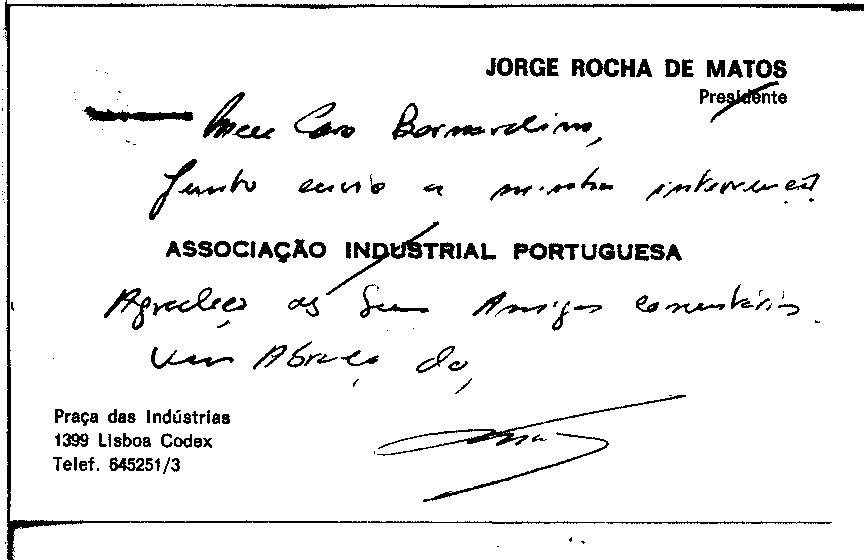 JORGE ROCHA DE MATOS
Presidente
Meu Caro Bernardino,
Junto envio a minha intervenção
ASSOCIAÇÃO INDUSTRIAL PORTUGUESA
Agradeço os Seus Amigos comentários.
Um Abraço do,
Praça das Indústrias
1399 Lisboa Codex
Telef. 645251/3